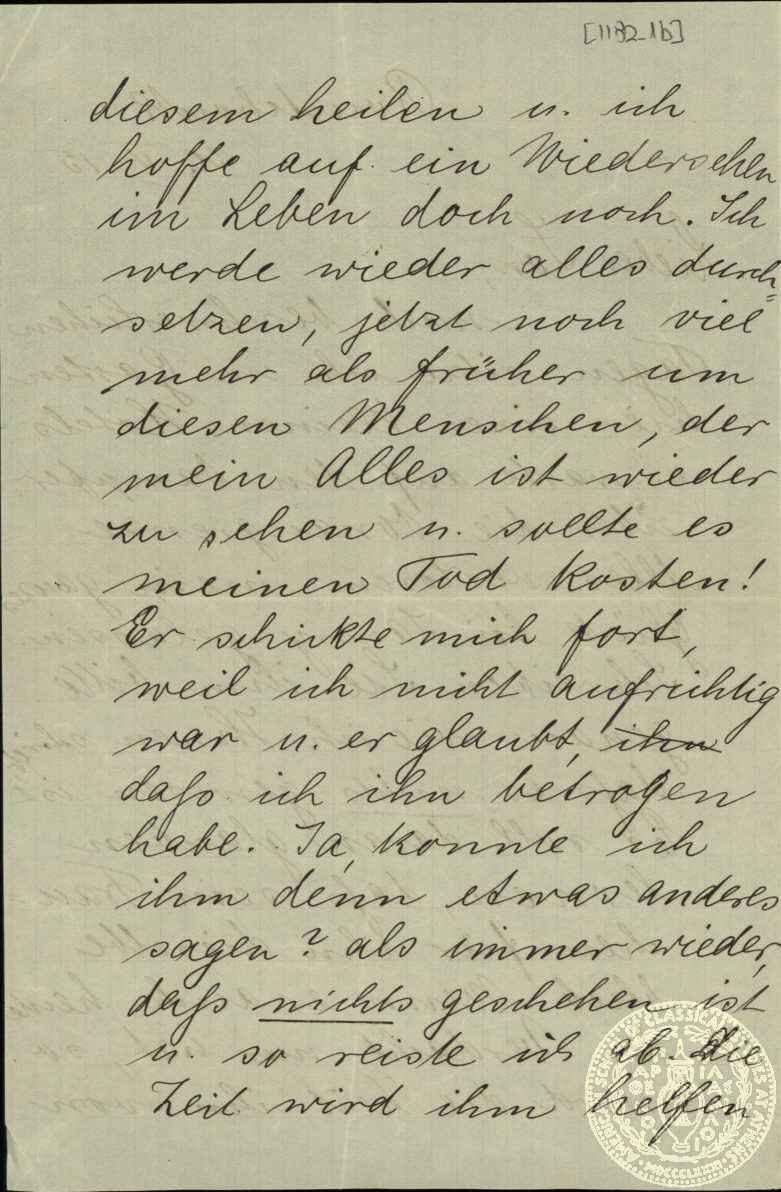 [1182_1b]
diesem heilen u. ich
hoffe auf ein Wiedersehen
im Leben doch noch. Ich
werde wieder alles durch=
setzen, jetzt noch viel
mehr als früher um
diesen Menschen, der
mein Alles ist wieder
zu sehen u. sollte es
meinen Tod kosten!
Er schickte mich fort,
weil ich nicht aufrichtig
war u. er glaubt, ihn
daß ich ihn betrogen
habe. Ja, konnte ich
ihm denn etwas anderes
sagen? als immer wieder,
daß nichts geschehen ist
u. so reiste ich ab. Die
Zeit wird ihm helfen